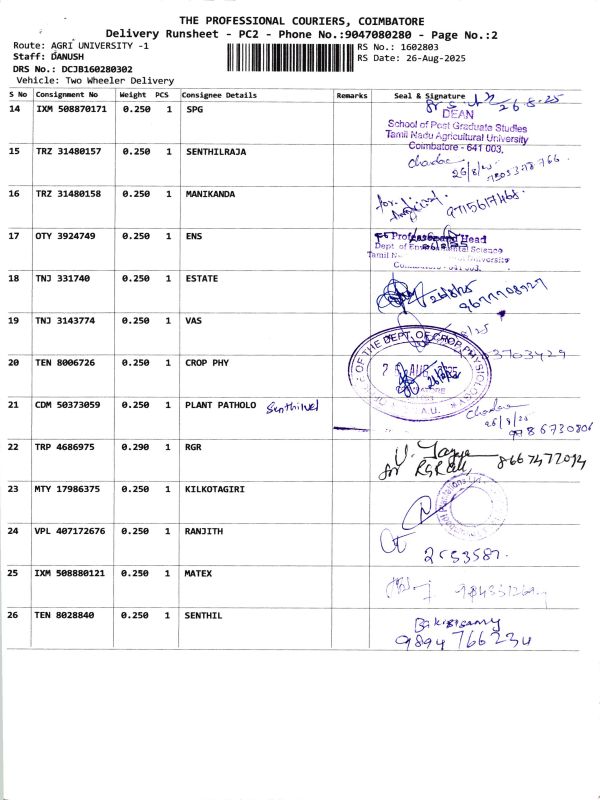 THE PROFESSIONAL COURIERS, COIMBATORE
Delivery Runsheet - PC2 - Phone No.:9047080280 - Page No.:2
Route: AGRI UNIVERSITY -1
RS No.: 1602803
Staff: DANUSH
RS Date: 26-Aug-2025
DRS No.: DCJB160280302
Vehicle: Two Wheeler Delivery
S No Consignment No Weight PCS Consignee Details Remarks Seal & Signature
14 IXM 508870171 0.250 1 SPG 26-8-25
DEAN
School of Post Graduate Studies
Tamil Nadu Agricultural University
Coimbatore - 641 003.
15 TRZ 31480157 0.250 1 SENTHILRAJA
16 TRZ 31480158 0.250 1 MANIKANDA
for
17 OTY 3924749 0.250 1 ENS
Professor and Head
Dept of Environmental Science
Tamil
Coimbatore - 641 003.
18 TNJ 331740 0.250 1 ESTATE 26/8/25
19 TNJ 3143774 0.250 1 VAS
OF THE DEPT. OF CROP PHYSIOLOGY
20 TEN 8006726 0.250 1 CROP PHY
3703429
21 CDM 50373059 0.250 1 PLANT PATHOLO Senthilvel
9786730806
22 TRP 4686975 0.290 1 RGR
8667477094
23 MTY 17986375 0.250 1 KILKOTAGIRI
24 VPL 407172676 0.250 1 RANJITH
25 IXM 508880121 0.250 1 MATEX
26 TEN 8028840 0.250 1 SENTHIL
9894766234